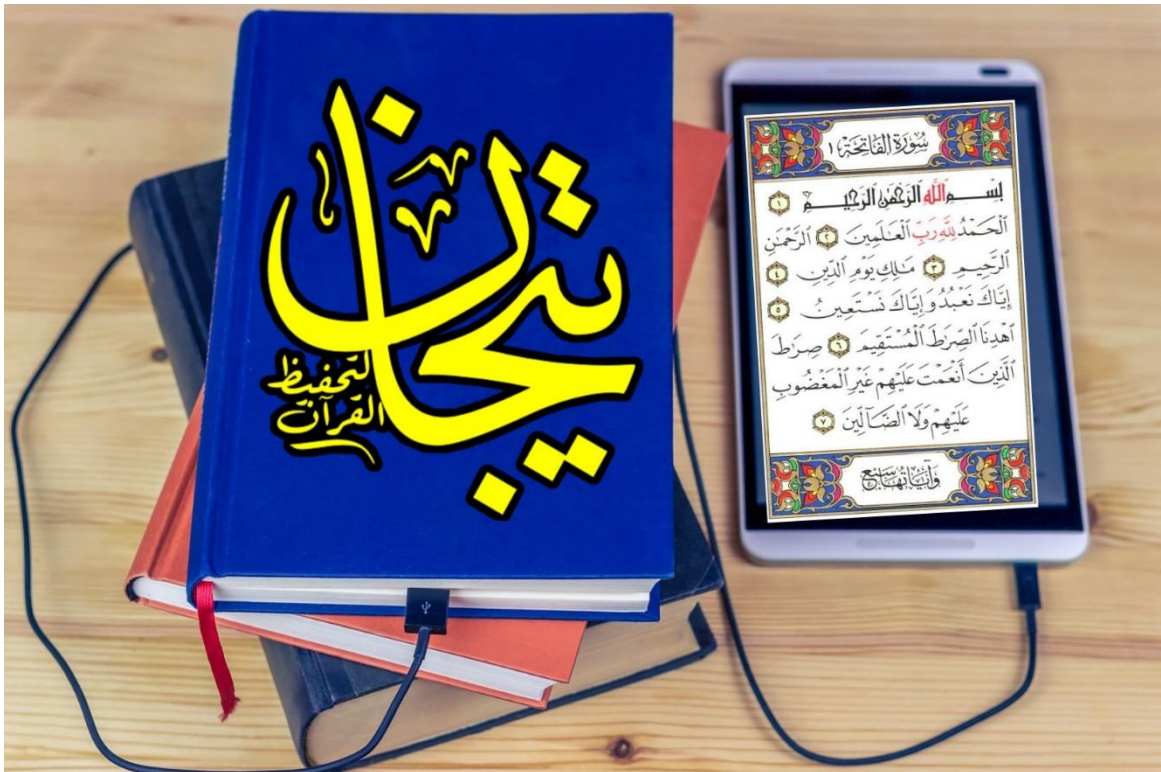 تيجان
لتحفيظ
القرآن
سُورَةُ الفَاتِحَةِ ١
بِسْمِ ٱللَّهِ ٱلرَّحْمَٰنِ ٱلرَّحِيمِ ١
ٱلْحَمْدُ لِلَّهِ رَبِّ ٱلْعَٰلَمِينَ ٢ ٱلرَّحْمَٰنِ
ٱلرَّحِيمِ ٣ مَٰلِكِ يَوْمِ ٱلدِّينِ ٤
إِيَّاكَ نَعْبُدُ وَإِيَّاكَ نَسْتَعِينُ ٥
ٱهْدِنَا ٱلصِّرَٰطَ ٱلْمُسْتَقِيمَ ٦ صِرَٰطَ
ٱلَّذِينَ أَنْعَمْتَ عَلَيْهِمْ غَيْرِ ٱلْمَغْضُوبِ
عَلَيْهِمْ وَلَا ٱلضَّآلِّينَ ٧
وَآيَاتُهَا سَبْعٌ